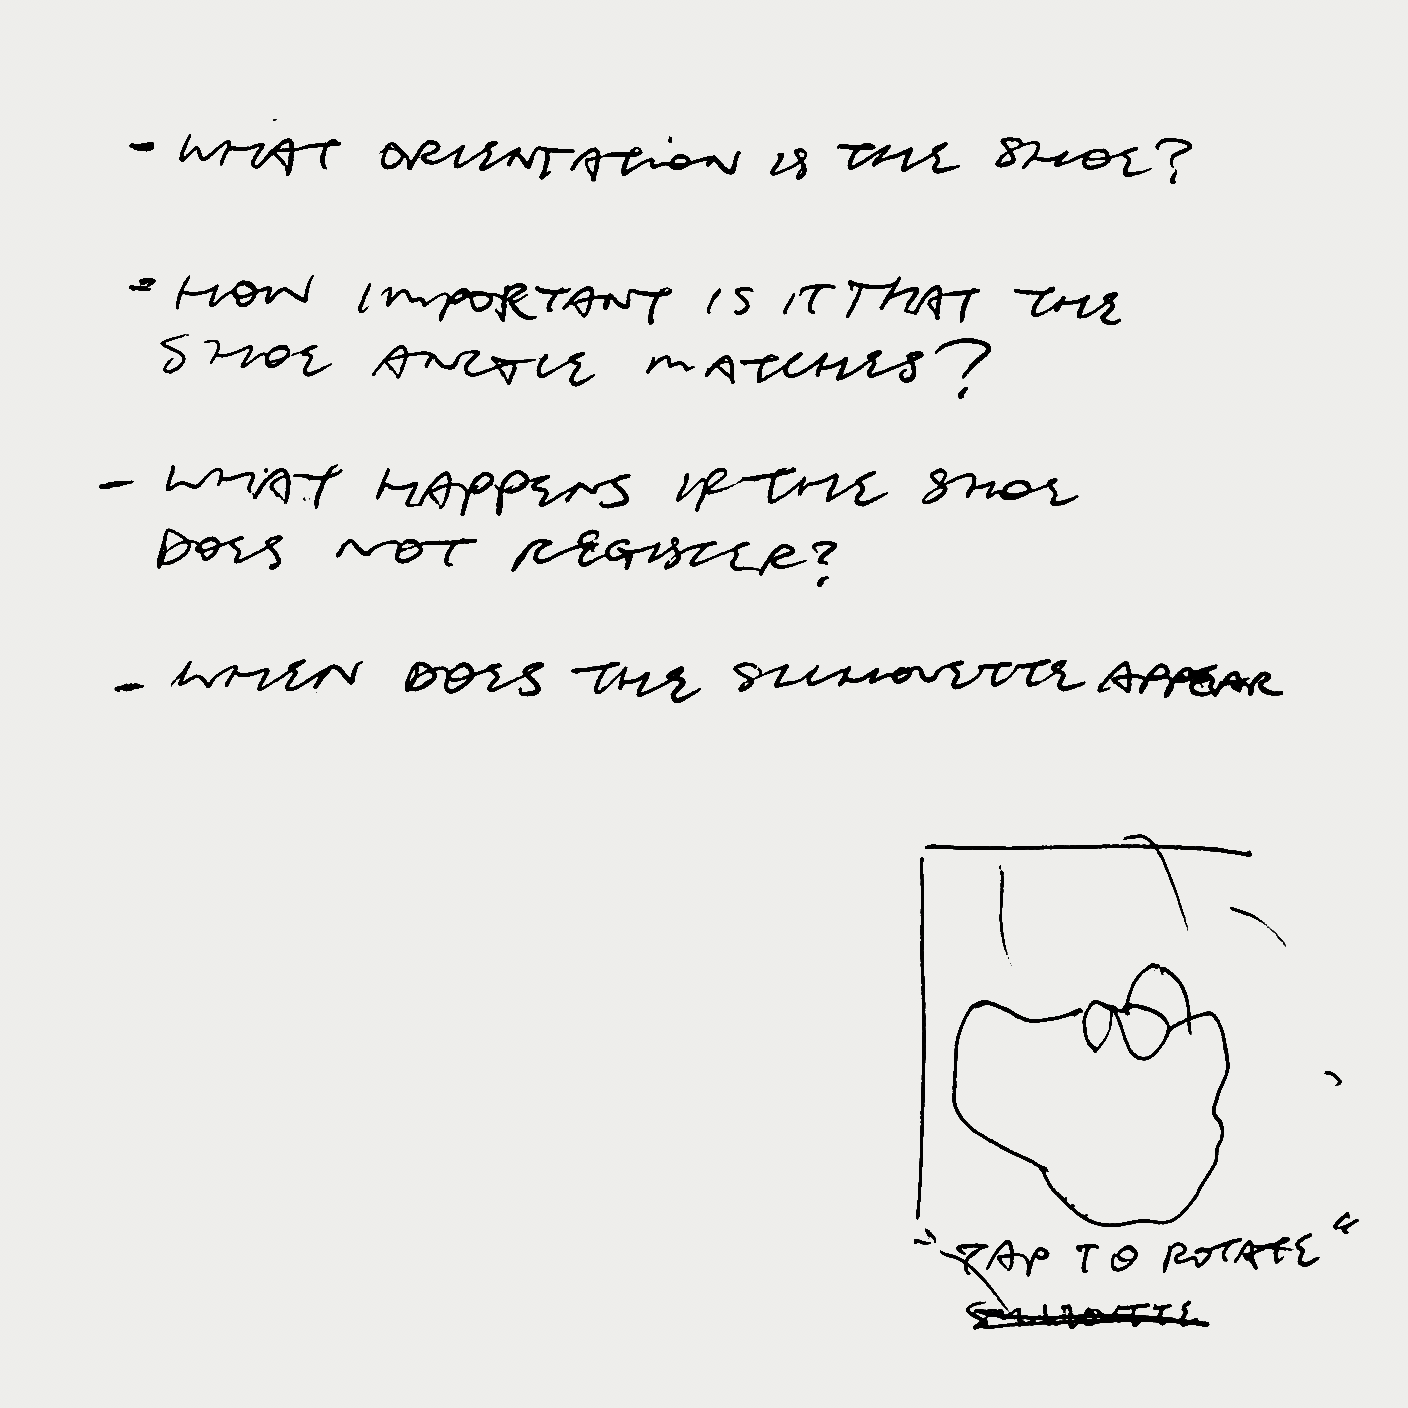 - WHAT ORIENTATION IS THE SHOE?
- HOW IMPORTANT IS IT THAT THE
SHOE ANGLE MATCHES?
- WHAT HAPPENS IF THE SHOE
DOES NOT REGISTER?
- WHEN DOES THE SILHOUETTE APPEAR
"TAP TO ROTATE"
SILHOUETTE